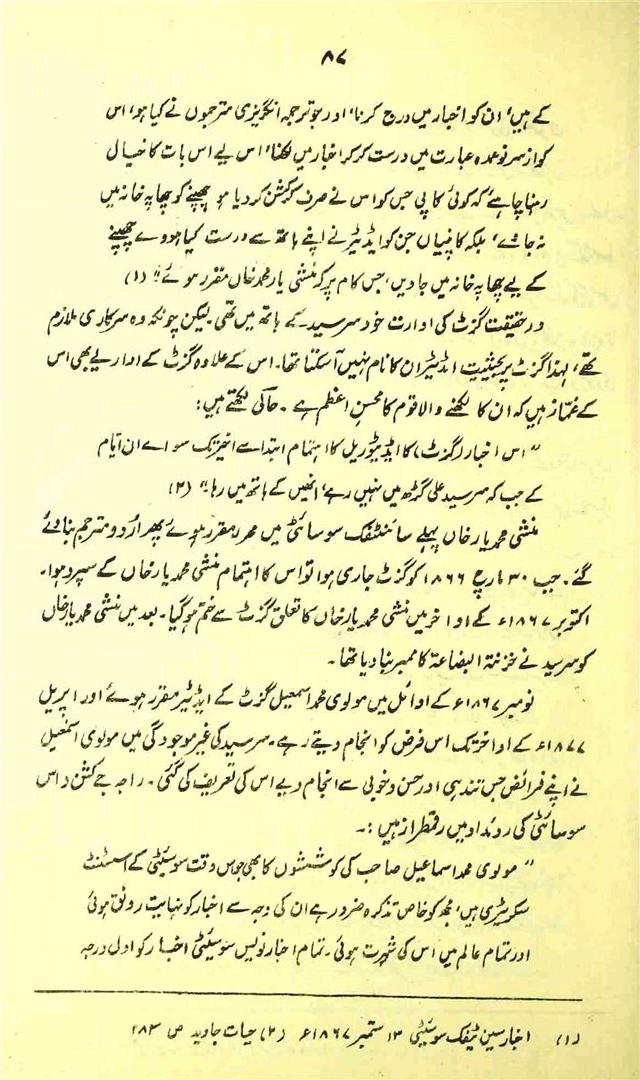 ۸۷
کے ہیں، ان کو اخبار میں درج کرنا، اور جو ترجمہ انگریزی مترجموں نے کیا ہو، اس
کو از سر نو عمدہ عبارت میں درست کر کر اخبار میں لکھنا، اس لیے اس بات کا خیال
رہنا چاہئے کہ کوئی کاپی جس کو اس نے صرف کرکشن کر دیا ہو چھپنے کو چھاپہ خانہ میں
نہ جاوے، بلکہ کاپیاں جن کو ایڈیٹر نے اپنے ہاتھ سے درست کیا ہووے چھپنے
کے لیے چھاپہ خانہ میں جاویں، جس کام پر کہ منشی یار محمد خاں مقرر ہوئے" (۱)
درحقیقت گزٹ کی ادارت خود سرسید کے ہاتھ میں تھی لیکن چونکہ وہ سرکاری ملازم
تھے، لہٰذا گزٹ پر بحیثیت اڈیٹر ان کا نام نہیں آسکتا تھا۔ اس کے علاوہ گزٹ کے اداریے بھی اس
کے غماز ہیں کہ ان کا لکھنے والا قوم کا محسنِ اعظم ہے ۔ حالی لکھتے ہیں :
"اس اخبار (گزٹ) کا ایڈیٹوریل کا اہتمام ابتدا سے اخیر تک سوا ے ان ایام
کے جب کہ سرسید علی گڑھ میں نہیں رہے، انھیں کے ہاتھ میں رہا۔" (۲)
منشی محمد یار خاں پہلے سائنٹفک سوسائٹی میں محرر مقرر ہوئے پھر اردو مترجم بنا دئے
گئے۔ جب ۳۰ مارچ ۱۸۶۶ کو گزٹ جاری ہوا تو اس کا اہتمام منشی محمد یار خاں کے سپرد ہوا۔
اکتوبر ۱۸۶۷ء کے اواخر میں منشی محمد یار خاں کا تعلق گزٹ سے ختم ہو گیا۔ بعد میں منشی محمد یار خاں
کو سرسید نے خزنۃ البضاعۃ کا ممبر بنا دیا تھا۔
نومبر ۱۸۶۷ء کے اوائل میں مولوی محمد اسمعیل گزٹ کے ایڈیٹر مقرر ہوئے اور اپریل
۱۸۷۷ء کے اواخر تک اس فرض کو انجام دیتے رہے۔ سرسید کی غیر موجودگی میں مولوی اسمعیل
نے اپنے فرائض جس تندہی اور حسن و خوبی سے انجام دیے اس کی تعریف کی گئی۔ راجہ جے کشن داس
سوسائٹی کی روداد میں رقمطراز ہیں :۔
"مولوی محمد اسماعیل صاحب کی کوششوں کا بھی جو اس وقت سوسیٹی کے اسسٹنٹ
سکریٹری ہیں، مجھ کو خاص تذکرہ ضرور ہے ان کی وجہ سے اخبار کو نہایت رونق ہوئی
اور تمام عالم میں اس کی شہرت ہوئی۔ تمام اخبار نویس سوسیٹی اخبار کو اول درجہ
(۱) اخبار سین ٹیفک سوسیٹی ۱۳ ستمبر ۱۸۶۷ء (۲) حیات جاوید ص ۲۸۳